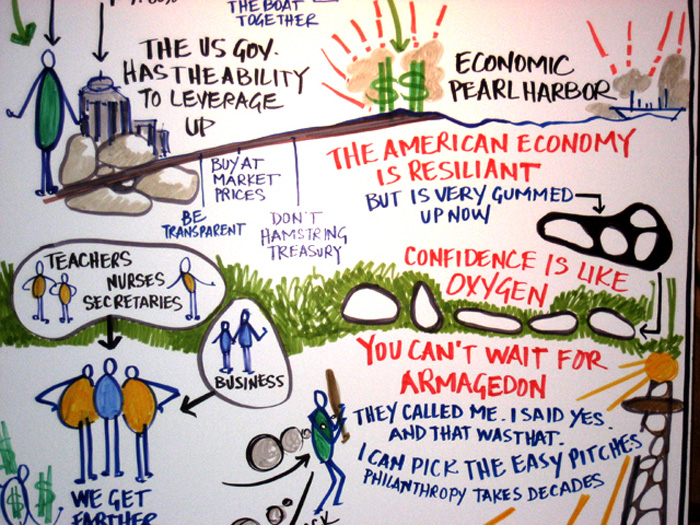 THE BOAT
TOGETHER
THE US GOV.
HAS THE ABILITY
TO LEVERAGE
UP
$$
ECONOMIC
PEARL HARBOR
THE AMERICAN ECONOMY
IS RESILIANT
BUT IS VERY GUMMED
UP NOW
BUY AT
MARKET
PRICES
BE
TRANSPARENT
DON'T
HAMSTRING
TREASURY
TEACHERS
NURSES
SECRETARIES
CONFIDENCE IS LIKE
OXYGEN
BUSINESS
YOU CAN'T WAIT FOR
ARMAGEDON
THEY CALLED ME. I SAID YES.
AND THAT WAS THAT.
I CAN PICK THE EASY PITCHES
PHILANTHROPY TAKES DECADES
WE GET
FARTHER